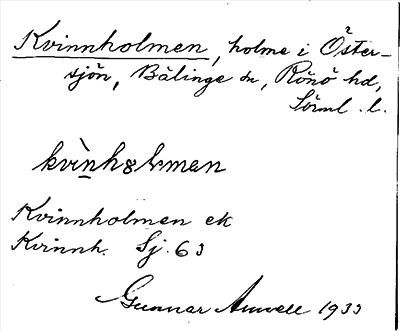 Kvinnholmen, holme i Öster-
sjön, Bälinge sn, Rönö hd,
Sörml. l.
kvìn̲hɷlmen
Kvinnholmen ek
Kvinnh. Sj. 63
Gunnar Amvell 1933